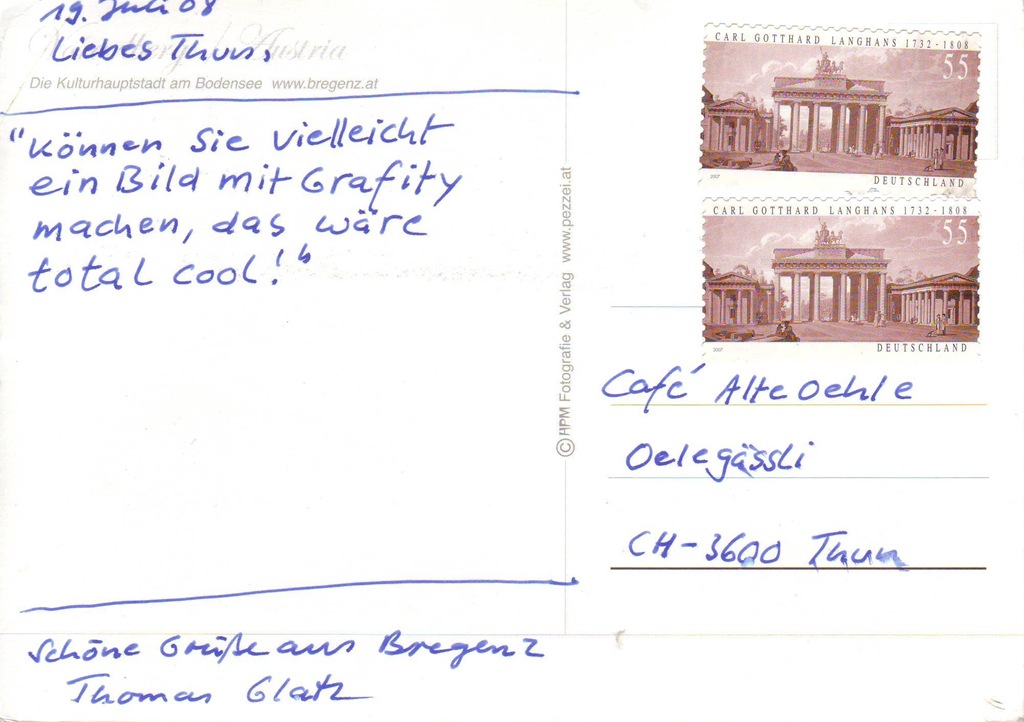 19. Juli 08
Liebes Thun,
Austria
Die Kulturhauptstadt am Bodensee www.bregenz.at
"Können Sie vielleicht
ein Bild mit Grafity
machen, das wäre
total cool!"
Schöne Grüße aus Bregenz
Thomas Glatz
© HPM Fotografie & Verlag www.pezzei.at
CARL GOTTHARD LANGHANS 1732-1808
55
2007
DEUTSCHLAND
CARL GOTTHARD LANGHANS 1732-1808
55
2007
DEUTSCHLAND
Café Alte Oehle
Oelegässli
CH-3600 Thun